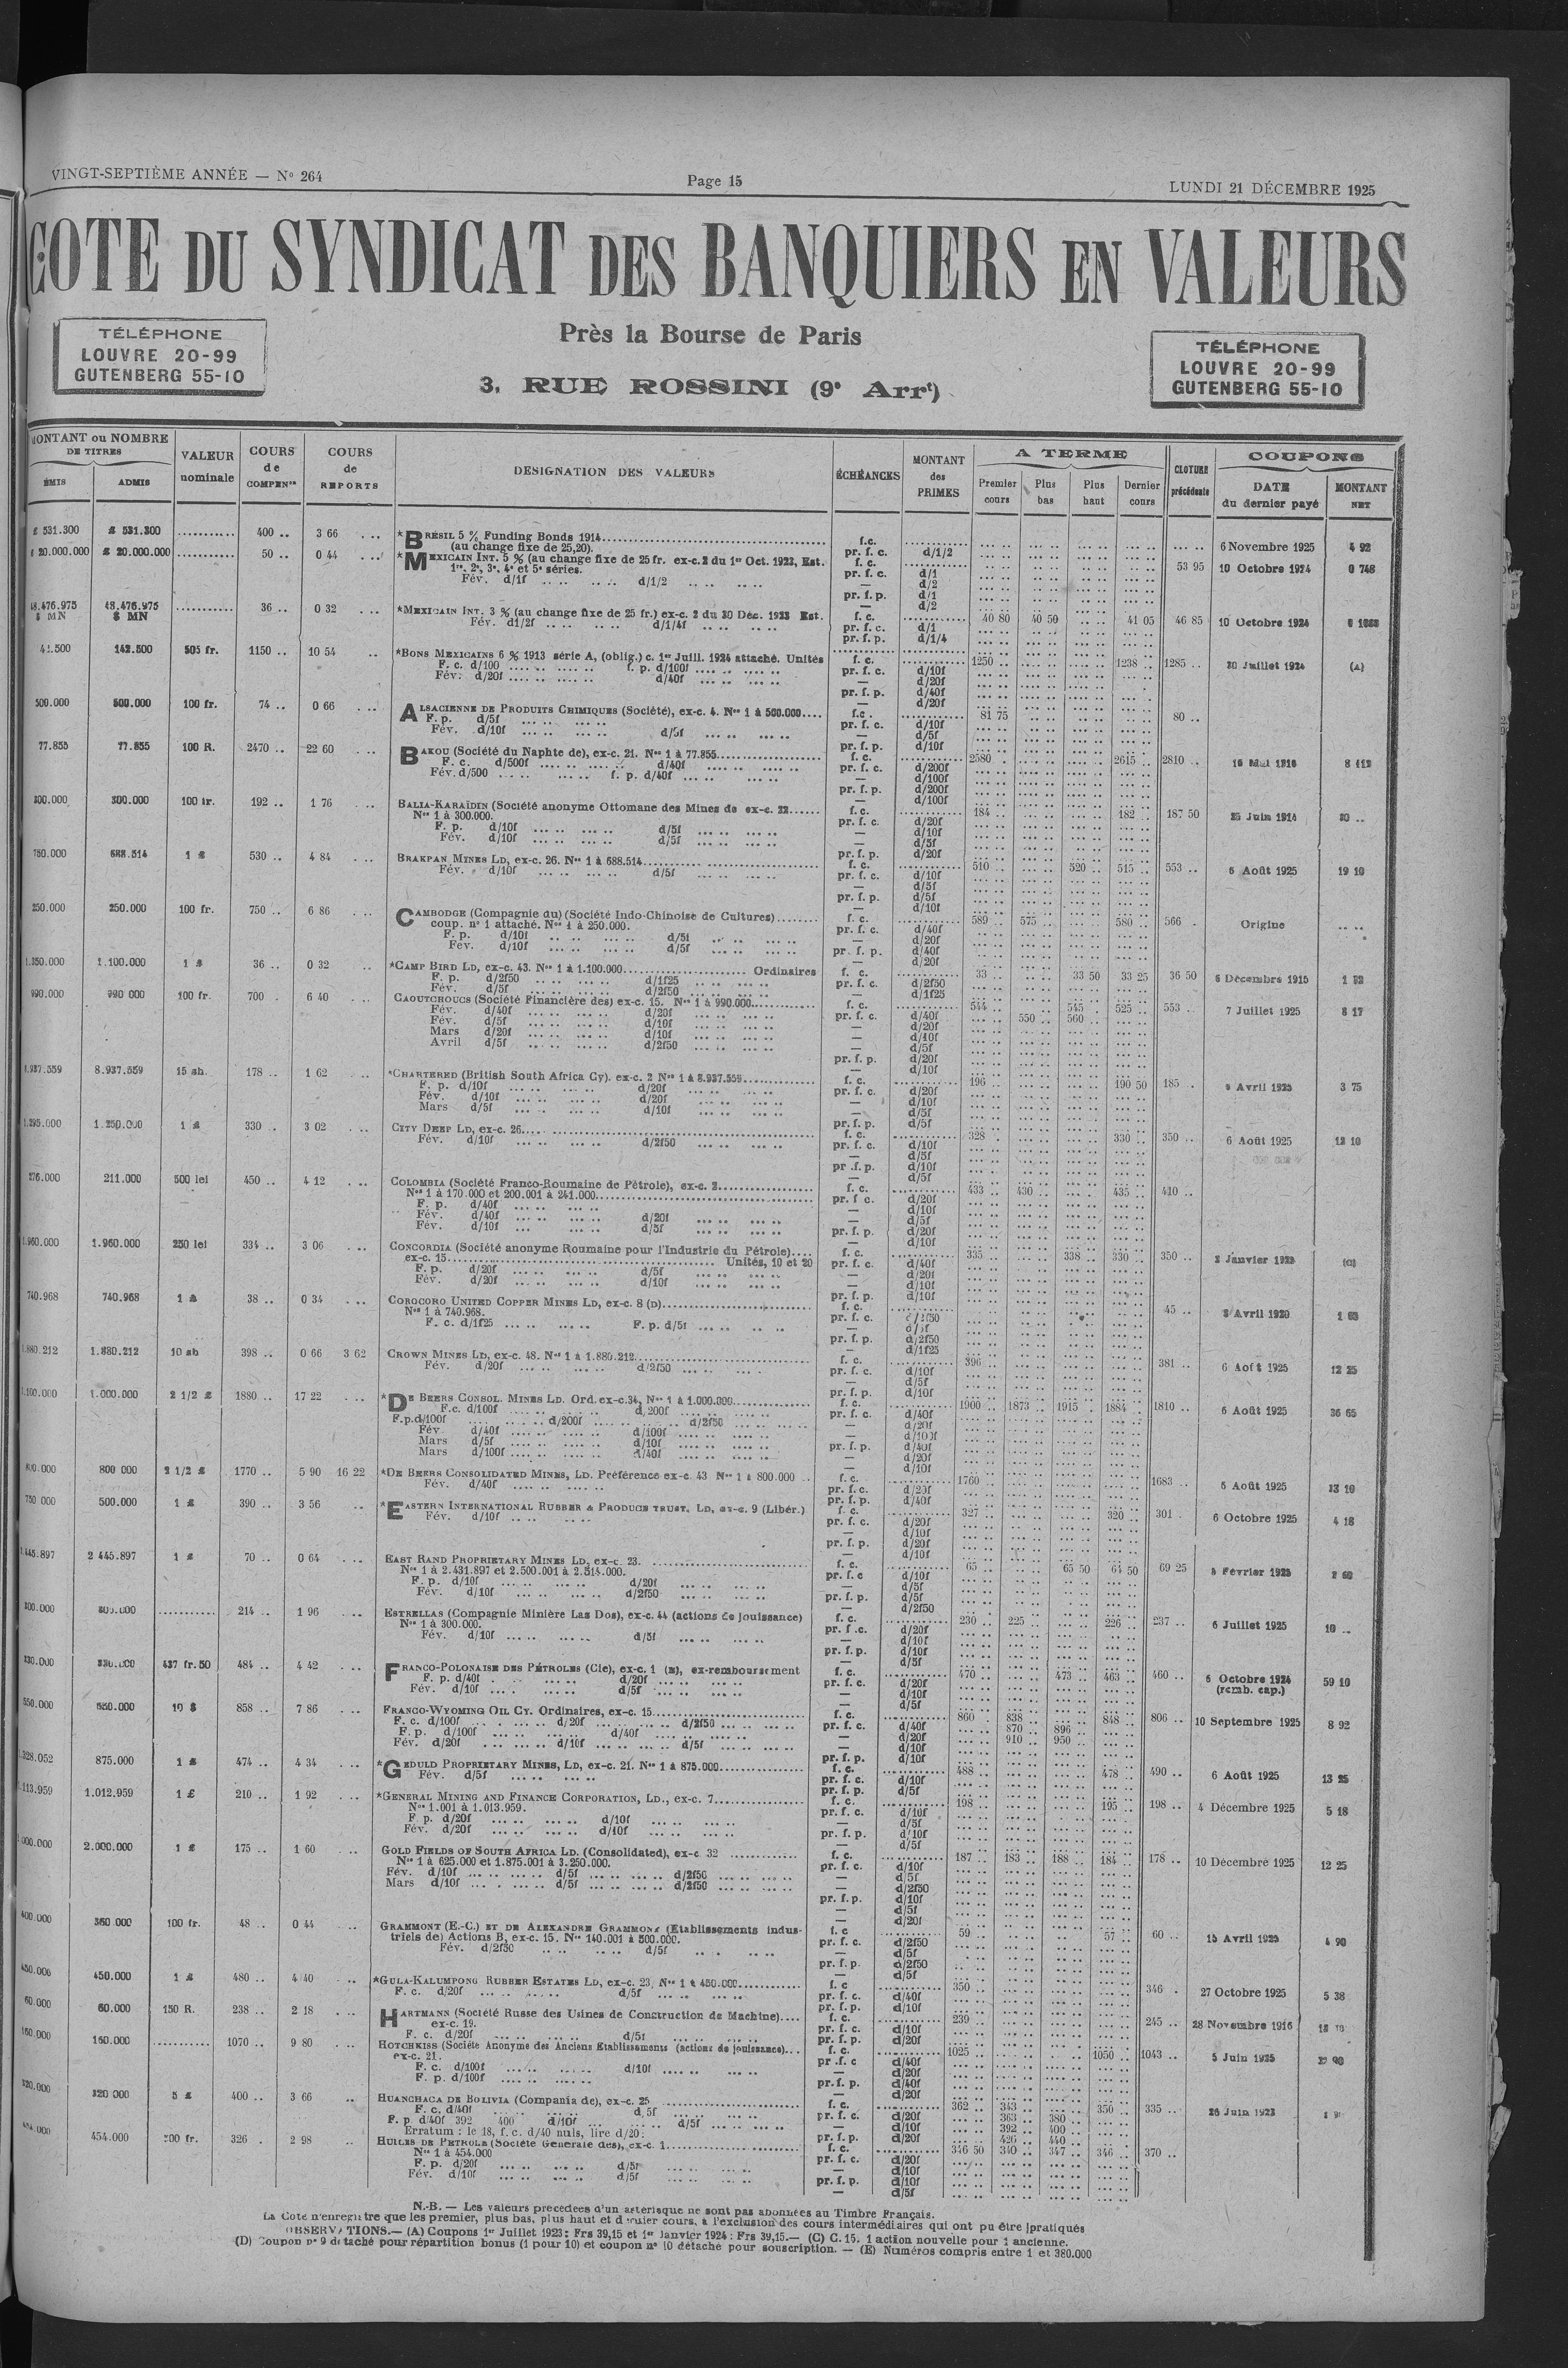 VINGT-SEPTIÈME ANNÉE — N° 264
Page 15
LUNDI 21 DÉCEMBRE 1925
COTE DU SYNDICAT DES BANQUIERS EN VALEURS
Près la Bourse de Paris
3, RUE ROSSINI (9e Arrt)
TÉLÉPHONE
LOUVRE 20-99
GUTENBERG 55-10
TÉLÉPHONE
LOUVRE 20-99
GUTENBERG 55-10
MONTANT ou NOMBRE DE TITRES
ÉMIS ADMIS
VALEUR nominale
COURS de COMPENson
COURS de REPORTS
DESIGNATION DES VALEURS
ÉCHÉANCES
MONTANT des PRIMES
A TERME
Premier cours Plus bas Plus haut Dernier cours
CLOTURE précédente
COUPONS
DATE du dernier payé MONTANT NET
£ 531.300 £ 531.300 ........... 400 .. 3 66 *BRÉSIL 5 % Funding Bonds 1914 f.c. 6 Novembre 1925 4 92
(au change fixe de 25,20). pr. f. c. d/1/2
£ 20.000.000 £ 20.000.000 ........... 50 .. 0 44 *MEXICAIN INT. 5 % (au change fixe de 25 fr. ex-c. 2 du 1er Oct. 1923, Est. f. c. 53 95 10 Octobre 1924 0 748
1re, 2e, 3e, 4e et 5e séries. pr. f. c. d/1
Fév. d/1f d/1/2 — d/2
pr. f. p. d/1
— d/2
48.476.975 $ MN 48.476.975 $ MN ........... 36 .. 0 32 *MEXICAIN INT. 3 % (au change fixe de 25 fr.) ex-c. 2 du 30 Déc. 1923 Est. f. c. 40 80 40 50 41 05 46 85 10 Octobre 1924
Fév. d1/2f d/1/4f pr. f. c. d/1
pr. f. p. d/1/4
142.500 505 fr. 1150 .. 10 54 *BONS MEXICAINS 6 % 1913 série A, (oblig.) c. 1er Juill. 1924 attaché. Unités f. c. 1250 1238 1285 .. 30 Juillet 1924 (A)
F. c. d/100 f. p. d/100f pr. f. c. d/10f
Fév. d/20f d/40f — d/20f
pr. f. p. d/40f
— d/20f
500.000 500.000 100 fr. 74 .. 0 66 ALSACIENNE DE PRODUITS CHIMIQUES (Société), ex-c. 4. Nos 1 à 500.000.... f.c. 81 75 80 ..
F. p. d/5f pr. f. c. d/10f
Fév. d/10f d/5f — d/5f
pr. f. p. d/10f
77.855 77.855 100 R. 2470 .. 22 60 BAKOU (Société du Naphte de), ex-c. 21. Nos 1 à 77.855 f. c. 2580 2615 .. 2810 .. 8 412
F. c. d/500f d/40f pr. f. c. d/200f
Fév. d/500 f. p. d/40f — d/100f
pr. f. p. d/200f
— d/100f
300.000 300.000 100 fr. 192 .. 1 76 BALIA-KARAÏDIN (Société anonyme Ottomane des Mines de ex-c. 32 f. c. 184 182 .. 187 50 25 Juin 1914 20 ..
Nos 1 à 300.000. pr. f. c. d/20f
F. p. d/10f d/5f — d/10f
Fév. d/10f d/5f — d/5f
pr. f. p. d/20f
750.000 688.514 1 £ 530 .. 4 84 BRAKPAN MINES LD, ex-c. 26. Nos 1 à 688.514 f. c. 510 520 515 .. 553 .. 6 Août 1925 19 10
Fév. d/10f d/5f pr. f. c. d/10f
— d/5f
pr. f. p. d/5f
— d/10f
250.000 250.000 100 fr. 750 .. 6 86 CAMBODGE (Compagnie du) (Société Indo-Chinoise de Cultures) f. c. 589 575 580 566 Origine
coup. n° 1 attaché. Nos 1 à 250.000. pr. f. c. d/40f
F. p. d/10f d/5f — d/20f
Fév. d/10f d/5f pr. f. p. d/40f
— d/20f
1.350.000 1.100.000 1 £ 36 .. 0 32 *CAMP BIRD LD, ex-c. 43. Nos 1 à 1.100.000 Ordinaires f. c. 33 33 50 33 25 36 50 6 Décembre 1915
F. p. d/2f50 d/1f25 pr. f. c. d/2f50
Fév. d/5f d/2f50 — d/1f25
990.000 990 000 100 fr. 700 . 6 40 CAOUTCHOUCS (Société Financière des) ex-c. 15. Nos 1 à 990.000 f. c. 544 545 525 .. 553 .. 7 Juillet 1925 8 17
Fév. d/40f d/20f pr. f. c. d/40f 550 560
Fév. d/5f d/10f — d/20f
Mars d/20f d/10f — d/10f
Avril d/5f d/2f50 — d/5f
pr. f. p. d/20f
— d/10f
8.937.559 8.937.559 15 sh. 178 .. 1 62 *CHARTERED (British South Africa Cy). ex-c. 2 Nos 1 à 8.937.559 f. c. 196 190 50 185 .. Avril 1925 3 75
F. p. d/10f d/20f pr. f. c. d/20f
Fév. d/10f d/20f — d/10f
Mars d/5f d/10f — d/5f
pr. f. p. d/5f
1.295.000 1.250.000 1 £ 330 . 3 02 CITY DEEP LD, ex-c. 26 f. c. 328 330 350 .. 6 Août 1925 12 10
Fév. d/10f d/2f50 pr. f. c. d/10f
— d/5f
pr .f. p. d/10f
— d/5f
276.000 211.000 500 lei 450 .. 4 12 COLOMBIA (Société Franco-Roumaine de Pétrole), ex-c. 2 f. c. 433 430 435 410 ..
Nos 1 à 170.000 et 200.001 à 241.000 pr. f c. d/20f
F. p. d/40f — d/10f
Fév. d/40f d/20f — d/5f
Fév. d/10f d/5f pr. f. p. d/20f
— d/10f
1.960.000 1.960.000 250 lei 334 .. 3 06 CONCORDIA (Société anonyme Roumaine pour l'Industrie du Pétrole).... f. c. 335 338 330 350 .. 2 Janvier 1925 (C)
ex-c. 15 Unités, 10 et 20 pr. f. c. d/40f
F. p. d/20f d/5f — d/20f
Fév. d/20f d/10f — d/10f
pr. f. p. d/10f
740.968 740.968 1 £ 38 .. 0 34 COROCORO UNITED COPPER MINES LD, ex-c. 8 (D) f. c. 45 .. Avril 1920
Nos 1 à 740.968. pr. f. c. d/2f50
F. c. d/1f25 F. p. d/5f — d/5f
pr. f. p. d/2f50
— d/1f25
1.880.212 1.880.212 10 sh 398 .. 0 66 3 62 CROWN MINES LD, ex-c. 48. Nos 1 à 1.880.212 f. c. 396 381 .. 6 Août 1925 12 25
Fév. d/20f d/2f50 pr. f. c. d/10f
— d/5f
pr. f. p. d/10f
1.100.000 1.000.000 2 1/2 £ 1880 .. 17 22 *DE BEERS CONSOL. MINES LD. Ord. ex-c. 34, Nos 1 à 1.000.000 f. c. 1900 1873 1915 1884 1810 .. 6 Août 1925 36 65
F.c. d/100f d, 200f pr. f. c. d/40f
F.p.d/100f d/200f d/2f50 — d/20f
Fév. d/40f d/100f — d/100f
Mars d/5f d/10f pr. f. p. d/40f
Mars d/100f d/40f — d/20f
— d/10f
800.000 800 000 2 1/2 £ 1770 .. 5 90 16 22 *DE BEERS CONSOLIDATED MINES, LD. Préférence ex-c. 43 Nos 1 à 800.000 f. c. 1760 1683 .. 6 Août 1925 13 10
Fév. d/40f pr. f. c. d/20f
pr. f. p. d/40f
750 000 500.000 1 £ 390 .. 3 56 *EASTERN INTERNATIONAL RUBBER & PRODUCE TRUST, LD, ex-c. 9 (Libér.) f. c. 327 320 301 . 6 Octobre 1925 4 18
Fév. d/10f pr. f. c. d/20f
— d/10f
pr. f. p. d/20f
— d/10f
2.445.897 2 445.897 1 £ 70 .. 0 64 EAST RAND PROPRIETARY MINES LD, ex-c. 23. f. c. 65 65 50 64 50 69 25 Février 1925 2 60
Nos 1 à 2.431.897 et 2.500.001 à 2.514.000. pr. f. c d/10f
F. p. d/10f d/20f — d/5f
Fév. d/10f d/2f50 pr. f. p. d/5f
— d/2f50
300.000 300.000 ........... 214 .. 1 96 ESTRELLAS (Compagnie Minière Las Dos), ex-c. 44 (actions de jouissance) f. c. 230 225 226 237 .. 6 Juillet 1925 10 ..
Nos 1 à 300.000. pr. f .c. d/20f
Fév. d/10f d/5f — d/10f
pr. f. p. d/10f
— d/5f
330.000 330.000 437 fr. 50 484 .. 4 42 FRANCO-POLONAISE DES PÉTROLES (Cie), ex-c. 1 (E), ex-remboursement f. c. 470 473 463 460 .. 6 Octobre 1924 59 10
F. p. d/40f d/20f pr. f. c. d/20f (remb. cap.)
Fév. d/10f d/5f — d/10f
— d/5f
550.000 550.000 10 $ 858 .. 7 86 FRANCO-WYOMING OIL CY. Ordinaires, ex-c. 15 f. c. 860 838 848 806 .. 10 Septembre 1925 8 92
F. c. d/100f d/20f d/2f50 pr. f. c. d/40f 870 896
F. p. d/100f d/40f — d/20f 910 950
Fév. d/20f d/10f d/5f — d/10f
pr. f. p. d/10f
1.328.052 875.000 1 £ 474 .. 4 34 *GEDULD PROPRIETARY MINES, LD, ex-c. 21. Nos 1 à 875.000 f. c. 488 478 490 .. 6 Août 1925 13 25
Fév. d/5f pr. f. c. d/10f
pr. f. p. d/5f
1.113.959 1.012.959 1 £ 210 .. 1 92 *GENERAL MINING AND FINANCE CORPORATION, LD., ex-c. 7 f. c. 198 195 198 .. 4 Décembre 1925 5 18
Nos 1.001 à 1.013.959. pr. f. c. d/10f
F. p. d/20f d/10f — d/5f
Fév. d/20f d/10f pr. f. p. d/10f
— d/5f
2.000.000 1 £ 175 .. 1 60 GOLD FIELDS OF SOUTH AFRICA LD. (Consolidated), ex-c 32 f. c. 187 183 188 184 178 .. 10 Décembre 1925 12 25
Nos 1 à 625.000 et 1.875.001 à 3.250.000. pr. f. c. d/10f
Fév. d/10f d/5f d/2f50 — d/5f
Mars d/10f d/5f d/2f50 — d/2f50
pr. f. p. d/10f
— d/5f
— d/20f
400.000 360.000 100 fr. 48 .. 0 44 GRAMMONT (E.-C.) ET DE ALEXANDRE GRAMMONT (Etablissements indus- f. c 59 57 60 .. 15 Avril 1925 4 90
triels de) Actions B, ex-c. 15. Nos 140.001 à 500.000. pr. f. c. d/2f50
Fév. d/2f50 d/5f — d/5f
pr. f. p. d/2f50
— d/5f
450.000 450.000 1 £ 480 .. 4 40 *GULA-KALUMPONG RUBBER ESTATES LD, ex-c. 23, Nos 1 à 450.000 f. c 350 346 . 27 Octobre 1925 5 38
F. c. d/20f d/5f pr. f. c. d/40f
pr. f. p. d/10f
60.000 60.000 150 R. 238 .. 2 18 HARTMANN (Société Russe des Usines de Construction de Machine).... f. c. 239 245 .. 28 Novembre 1916
ex-c. 19. pr. f. c. d/10f
F. c. d/20f d/5f pr. f. p. d/20f
160.000 160.000 ........... 1070 .. 9 80 HOTCHKISS (Société Anonyme des Anciens Etablissements (actions de jouissance)... f. c. 1025 1050 1043 .. 5 Juin 1925
ex-c. 21. pr .f. c d/40f
F. c. d/100f d/10f — d/20f
F. p. d/100f pr. f. p. d/40f
— d/20f
320.000 320 000 5 £ 400 .. 3 66 HUANCHACA DE BOLIVIA (Compania de), ex-c. 25 f. c. 362 343 350 335 .. 26 Juin 1923
F. c. d/40f d, 5f pr. f. c. d/20f 363 380
F. p d/40f 392 400 d/10f d/5f — d/10f 392 400
Erratum : le 18, f. c. d/40 nuls, lire d/20. pr. f. p. d/20f 426 440
454.000 326 . 2 98 HUILES DE PETROLE (Société Générale des), ex-c. 1 f. c. 346 50 340 347 346 370 ..
Nos 1 à 454.000 pr. f. c. d/20f
F. p. d/20f d/5f — d/10f
Fév. d/10f d/5f pr. f. p. d/10f
— d/5f
N.-B. — Les valeurs précédées d'un astérisque ne sont pas abonnées au Timbre Français.
La Cote n'enregistre que les premier, plus bas, plus haut et dernier cours, à l'exclusion des cours intermédiaires qui ont pu être pratiqués
OBSERVATIONS.— (A) Coupons 1er Juillet 1923 : Frs 39,15 et 1er Janvier 1924 : Frs 39,15.— (C) C. 15. 1 action nouvelle pour 1 ancienne.
(D) Coupon n° 9 détaché pour répartition bonus (1 pour 10) et coupon n° 10 détaché pour souscription. — (E) Numéros compris entre 1 et 380.000